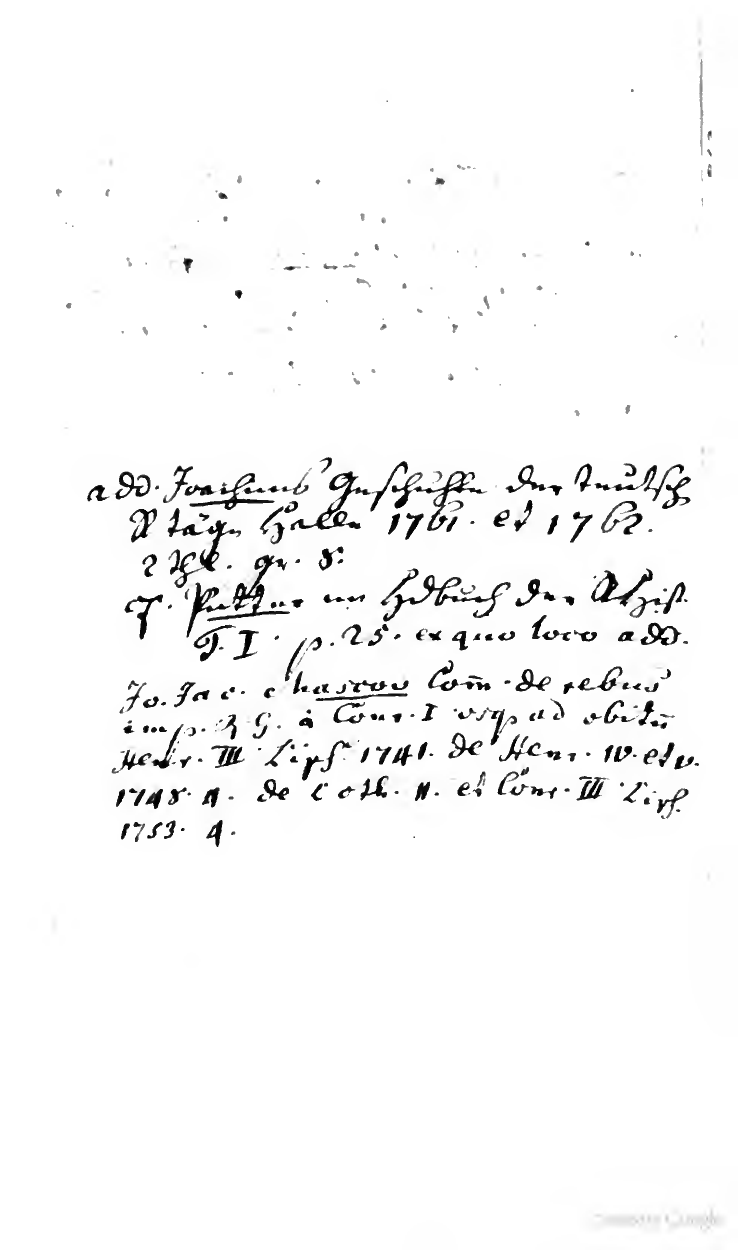 add. Joachims Geschichte der teutsch
R täge Halle 1761. et 1762.
2 Thl. gr. 8.
cf. Pütter im Hdbuch der RHist.
T. I. p. 25. ex quo loco add.
Jo. Jac. Mascov Com̄. de rebus
imp. R G. à Conr. I usq ad obitū
Henr. III Lips. 1741. de Henr. IV. et V.
1748. 4. de Loth. II. et Conr. III Lips.
1753. 4.